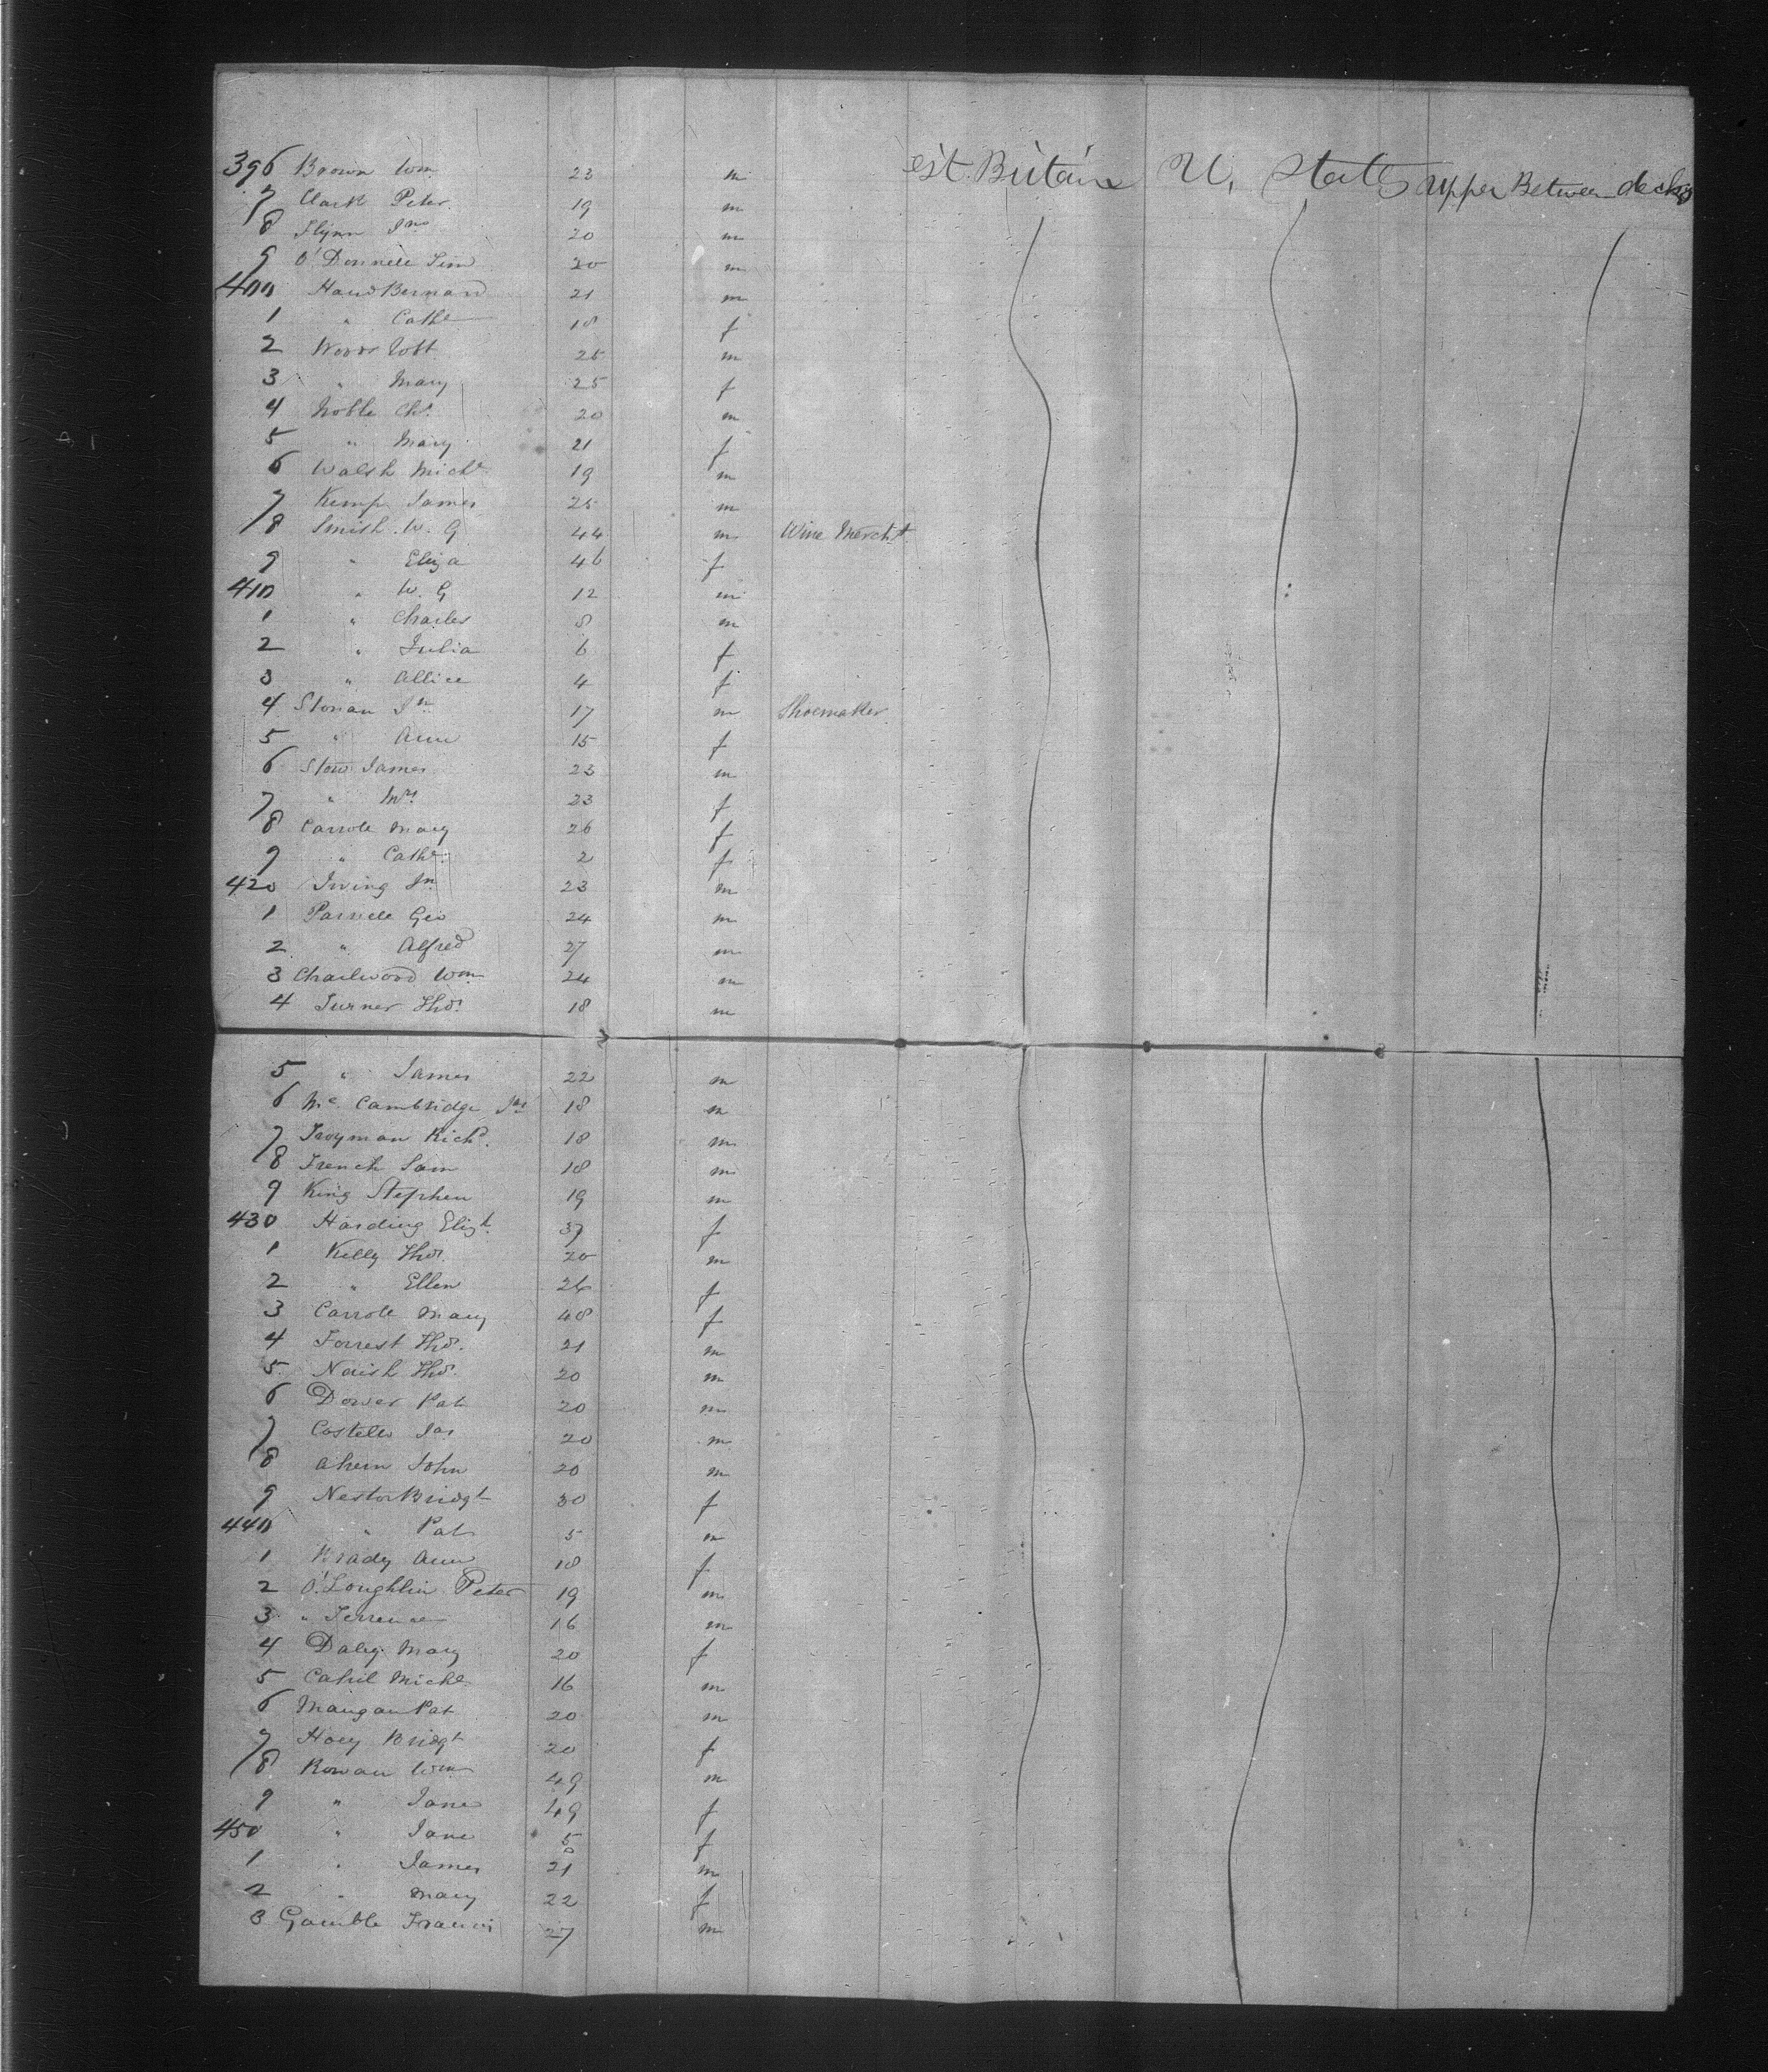 396 Brown Wm 23 m Gt. Britain U. States upper Between decks
7 Clark Peter 19 m
8 Flynn Jno 20 m
9 O'Donnell Tim 20 m
400 Hand Bernard 21 m
1 " Cathe 18 f
2 Woods Robt 25 m
3 " Mary 25 f
4 Noble Chs. 20 m
5 " Mary 21 f
6 Walsh Michl 19 m
7 Kemp James 25 m
8 Smith W. G 44 m Wine Mercht
9 " Eliza 46 f
410 " W. G 12 m
1 " Charles 8 m
2 " Julia 6 f
3 " Allice 4 f
4 Slonan Jn 17 m Shoemaker
5 " Ann 15 f
6 Stow James 23 m
7 " Mrs 23 f
8 Carroll Mary 26 f
9 " Cathe 2 f
420 Irving Jn 23 m
1 Parnell Geo 24 m
2 " Alfred 27 m
3 Charlwood Wm 24 m
4 Turner Thos. 18 m
5 " James 22 m
6 Mc Cambridge Jas 18 m
7 Troyman Richd. 18 m
8 French Sam 18 m
9 King Stephen 19 m
430 Harding Elizt. 37 f
1 Kelly Thos. 20 m
2 " Ellen 26 f
3 Carroll Mary 48 f
4 Forrest Thos. 21 m
5 Naish Thos. 20 m
6 Dower Pat 20 m
7 Costello Jas 20 m
8 Ahern John 20 m
9 Nestor Bridgt 30 f
440 " Pat 5 m
1 Brady Ann 18 f
2 O'Loughlin Peter 19 m
3 " Terrence 16 m
4 Daley Mary 20 f
5 Cahil Michl 16 m
6 Mangan Pat 20 m
7 Hoey Bridgt 20 f
8 Rowan Wm 49 m
9 " Jane 49 f
450 " Jane 5 f
1 " James 21 m
2 " Mary 22 f
3 Gamble Francis 27 m